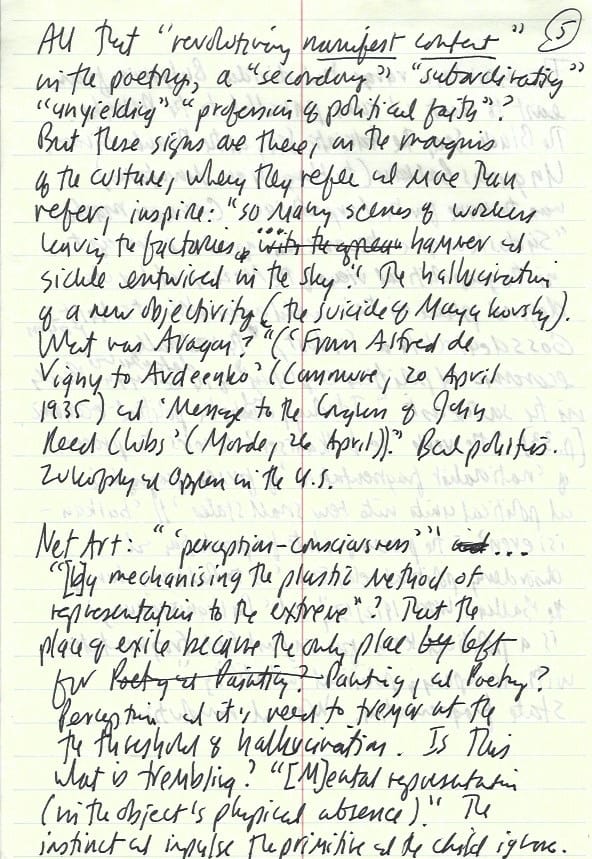 5
All that "revolutionary manifest content"
in the poetry, a "secondary" "subordinating"
"unyielding" "profession of political faith"?
But these signs are there, on the margins
of the culture, where they refer and more than
refer, inspire: "so many scenes of workers
leaving the factories, ... with the hammer and
sickle entwined in the sky". The hallucination
of a new objectivity (the suicide of Mayakovsky).
What was Aragon? "('From Alfred de
Vigny to Avdeenko' (Commune, 20 April
1935) and 'Message to the Congress of John
Reed Clubs' (Monde, 26 April))." Bad politics.
Zukofsky and Oppen in the U.S.
Net Art: "'perception-consciousness'" ...
"[b]y mechanising the plastic method of
representation to the extreme"? That the
place of exile because the only place by left
for Poetry and Painting? Painting and Poetry?
Perception and its need to tremor at the
the threshold of hallucination. Is this
what is trembling? "[M]ental representation
(in the object's physical absence)." The
instinct and impulse the primitive and the child ignore.